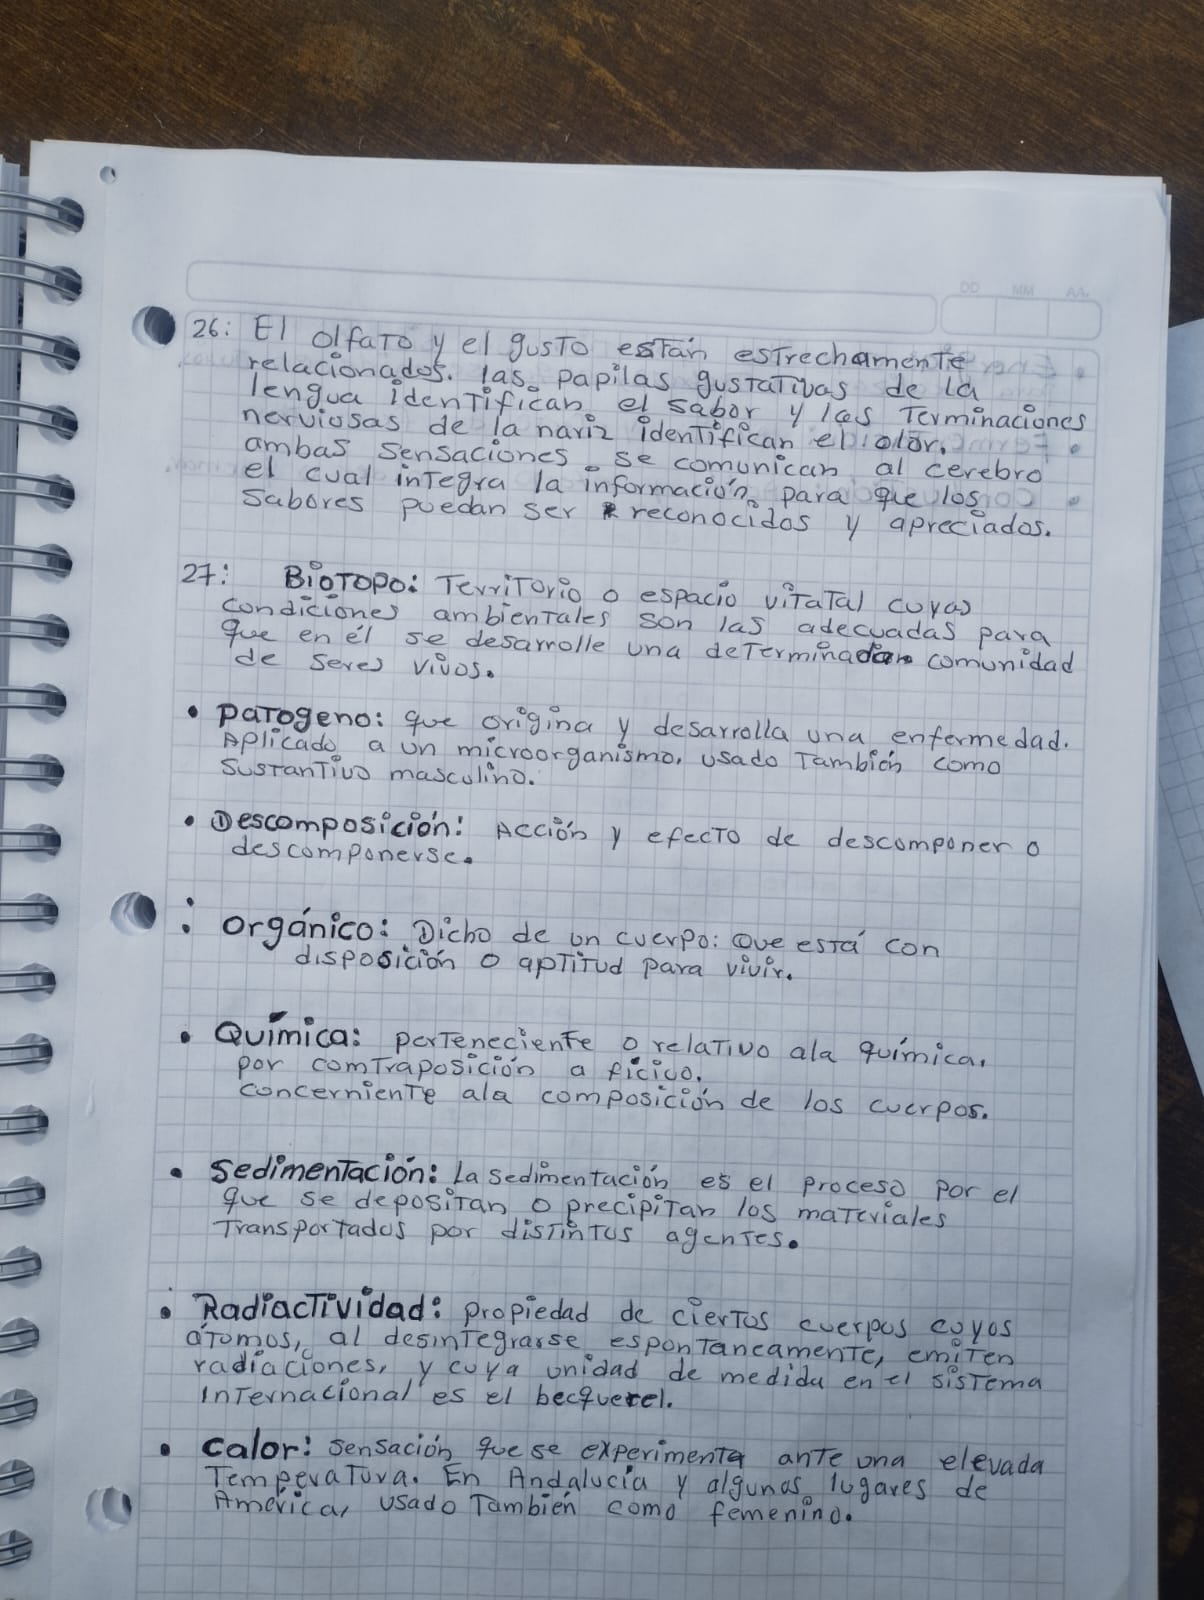 DD MM AA.
26: El olfato y el gusto están estrechamente
relacionados. las papilas gustativas de la
lengua identifican el sabor y las terminaciones
nerviosas de la nariz identifican el olor.
ambas sensaciones se comunican al cerebro
el cual integra la información para que los
sabores puedan ser reconocidos y apreciados.
27: Biotopo: Territorio o espacio vitatal cuyas
condiciones ambientales son las adecuadas para
que en él se desarrolle una determinada comunidad
de seres vivos.
• patogeno: que origina y desarrolla una enfermedad.
Aplicado a un microorganismo, usado también como
sustantivo masculino.
• Descomposición: Acción y efecto de descomponer o
descomponerse.
• orgánico: Dicho de un cuerpo: Que está con
disposición o aptitud para vivir.
• Química: perteneciente o relativo ala química,
por comtraposición a fícico.
concerniente ala composición de los cuerpos.
• Sedimentación: La sedimentación es el proceso por el
que se depositan o precipitan los materiales
transportados por distintos agentes.
• Radiactividad: propiedad de ciertos cuerpos cuyos
átomos, al desintegrarse espontaneamente, emiten
radiaciones, y cuya unidad de medida en el sistema
internacional es el becquerel.
• calor: sensación que se experimenta ante una elevada
temperatura. En Andalucía y algunos lugares de
América, usado también como femenino.